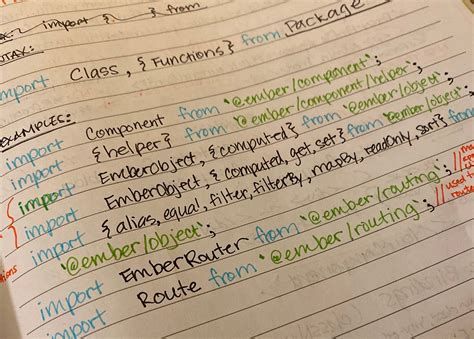 import { } from
import Class, { Functions } from Package
EXAMPLES:
import Component from '@ember/component';
import {helper} from '@ember/component/helper';
import EmberObject, {computed} from '@ember/object';
import EmberObject, { computed, get, set} from '@ember/object';
import { alias, equal, filter, filterBy, mapBy, readOnly, sort} from
'@ember/object';
import EmberRouter from '@ember/routing';
import Route from '@ember/routing'; //used